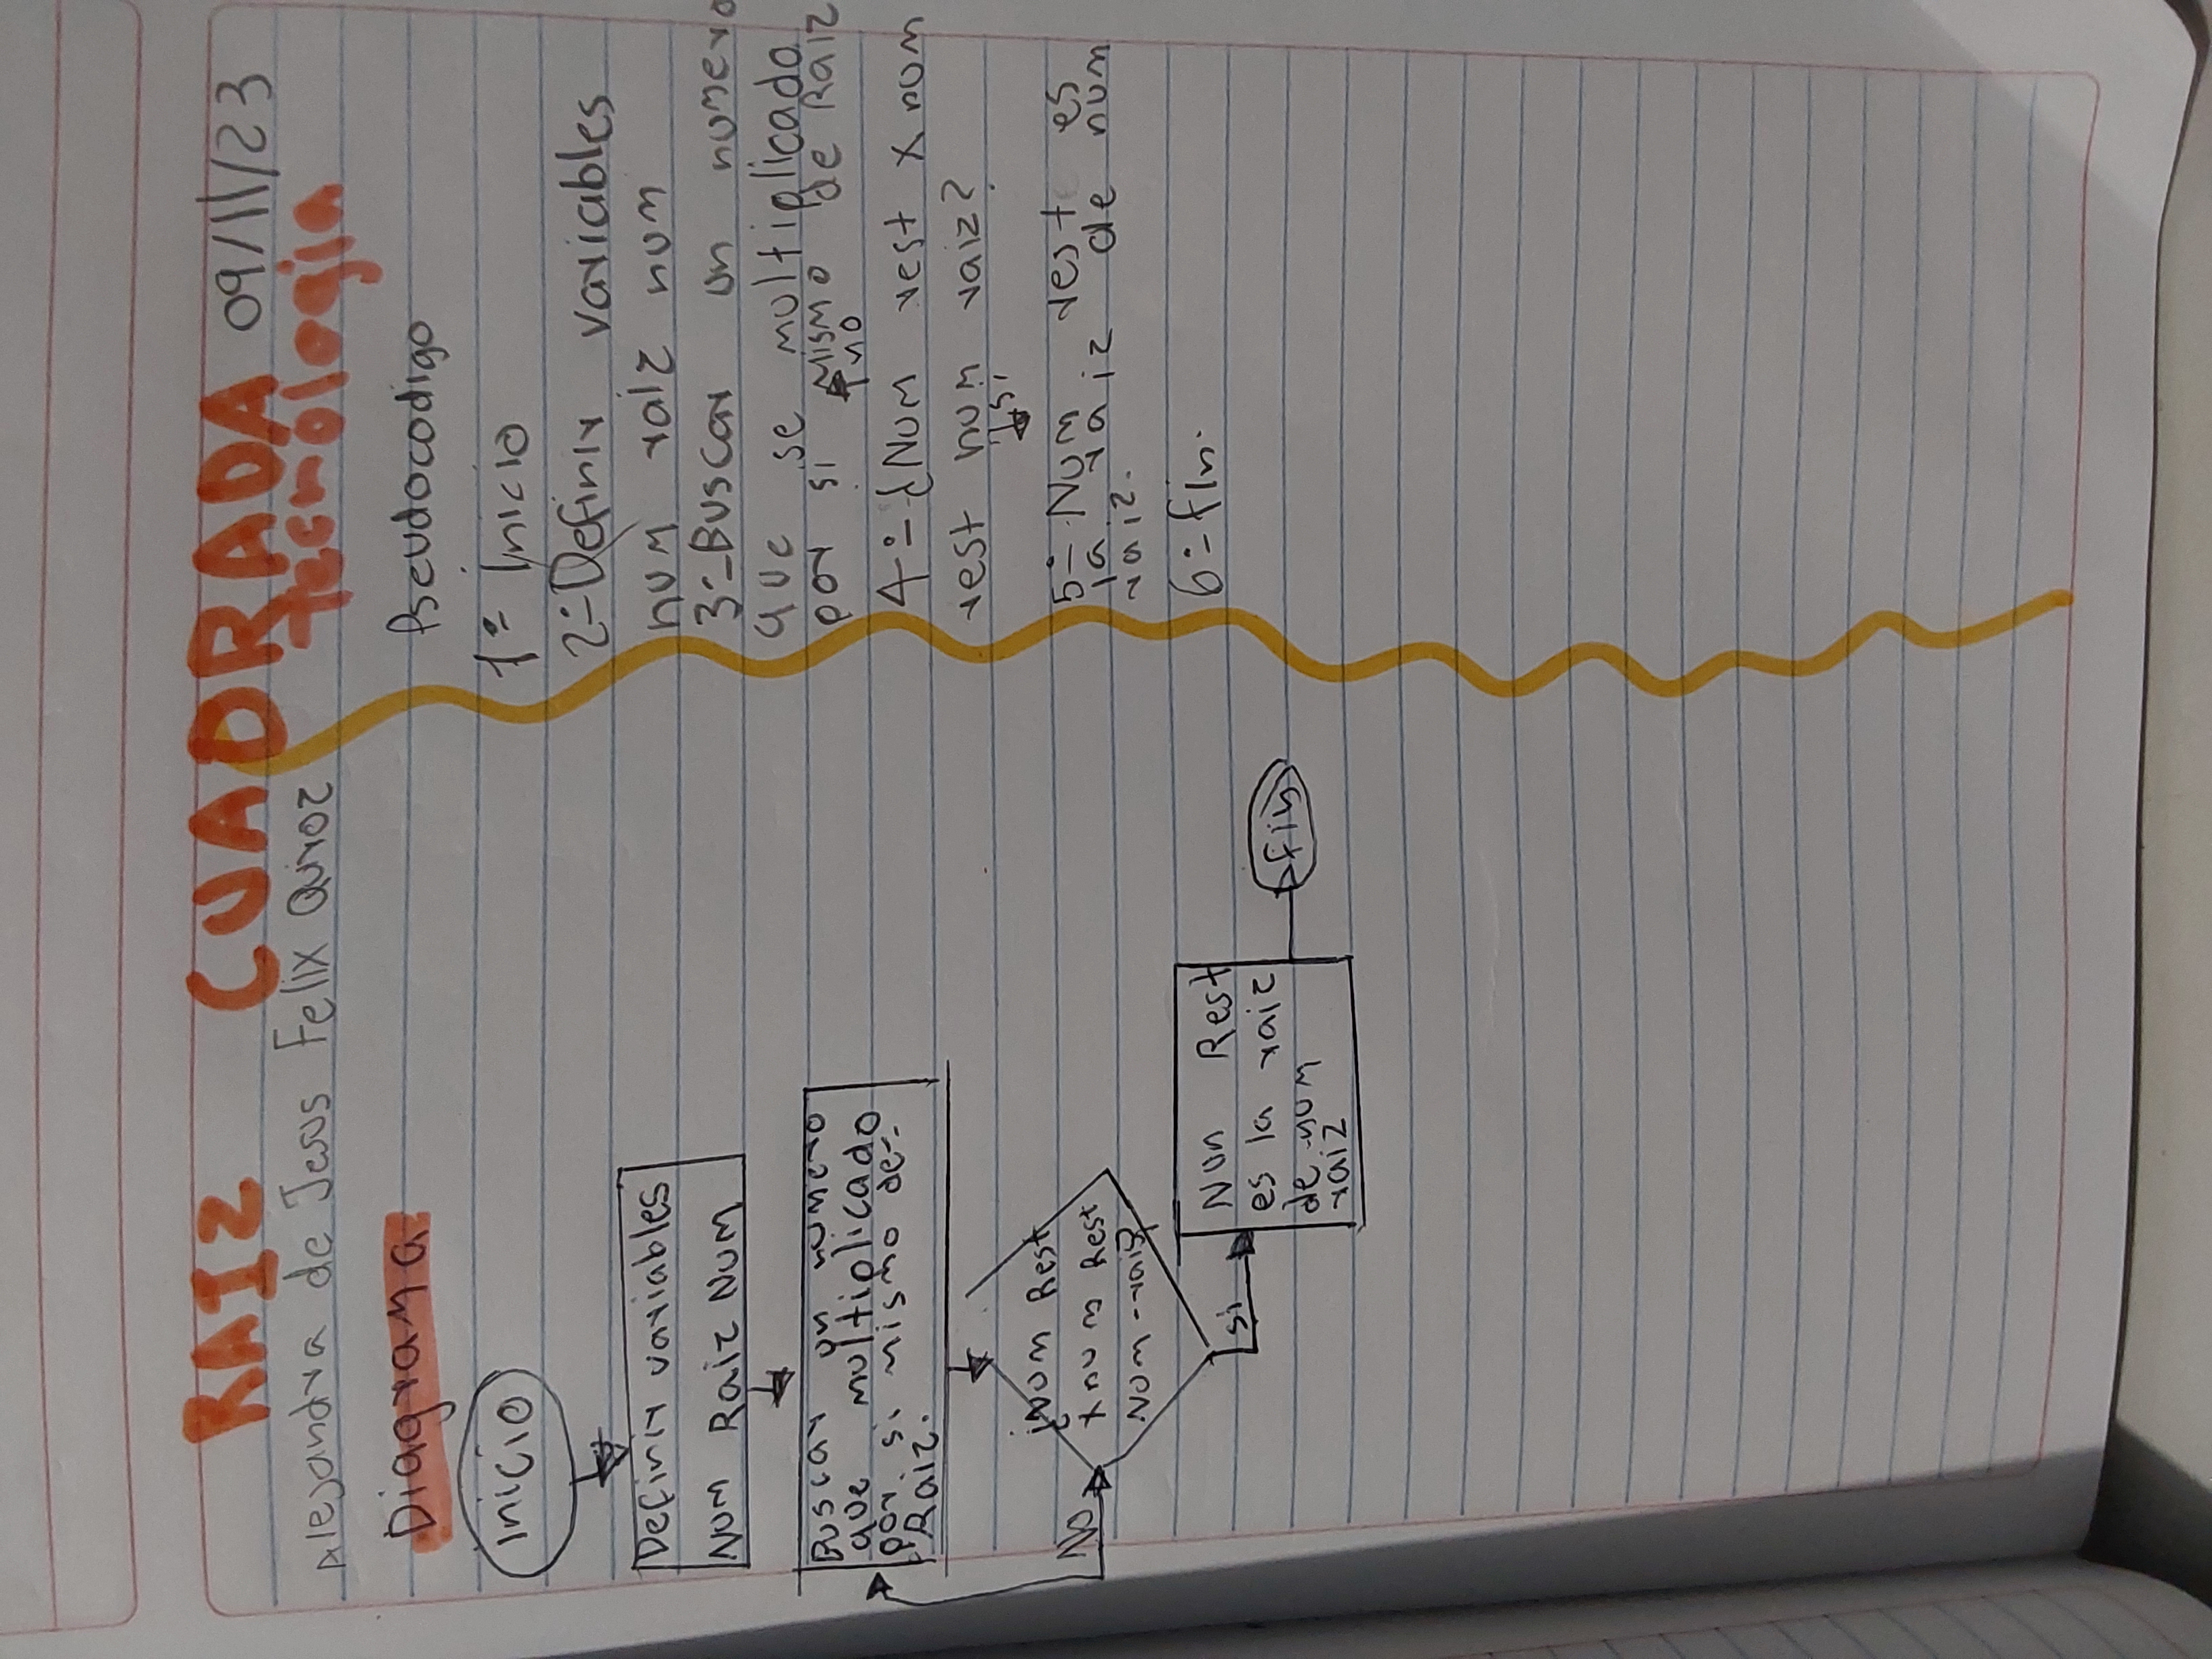 RAIZ CUADRADA 09/11/23
Alejandra de Jesus Felix Quiroz
Tecnologia
Diagrama
Inicio
Definir variables
Num Raiz Num
Buscar un numero
que multiplicado
por si mismo de:
Raiz.
¿Num Rest
x num Rest
Num - raiz
No
si
Non Rest
es la raiz
de num
raiz
fin
Pseudocodigo
1:- Inicio
2:- Definir variables
num raiz num
3:- Buscar un numero
que se multiplicado
por si mismo de Raiz
no
4:- ¿Num rest x num
rest num raiz?
si
5:- Num rest es
la raiz de num
raiz.
6:- fin.